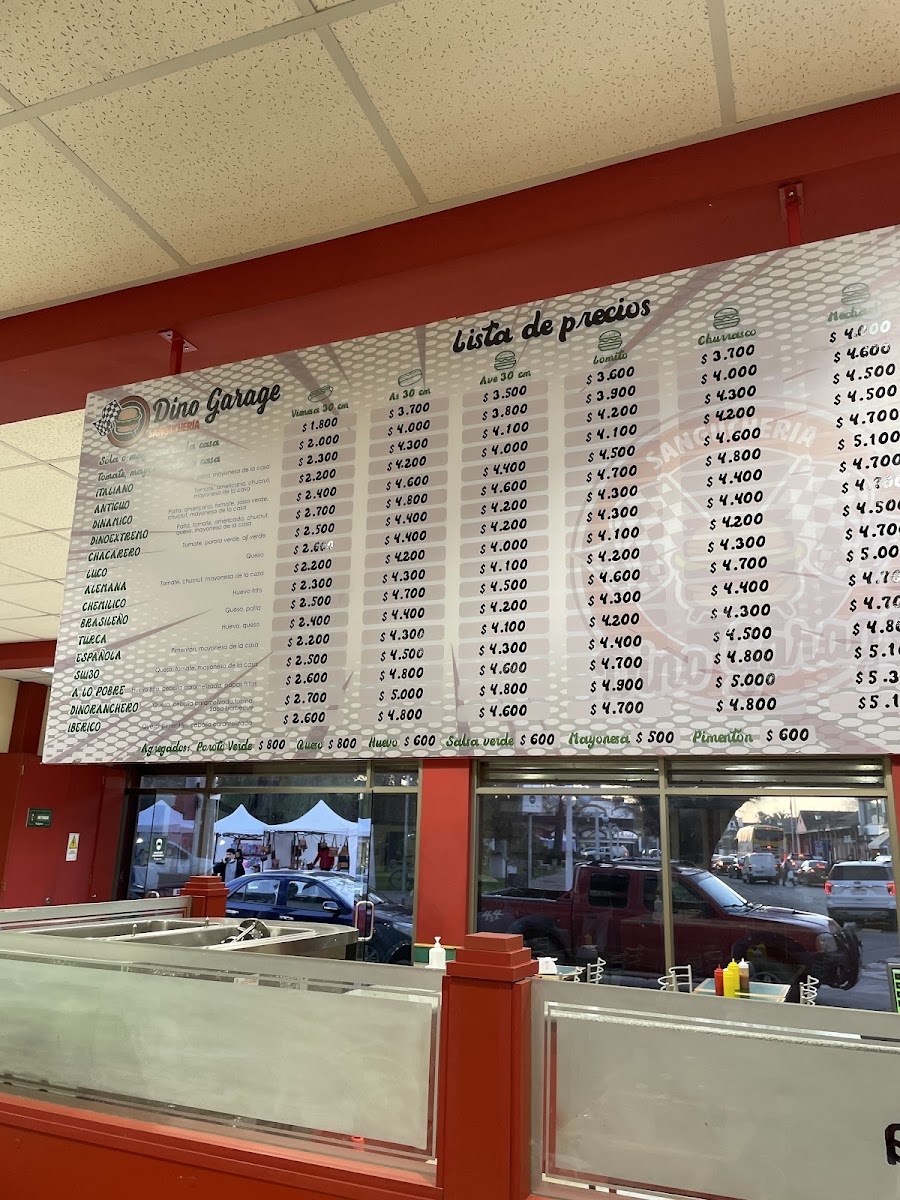 Lista de precios
Dino Garage
SANGUCHERÍA
Vienesa 30 cm As 30 cm Ave 30 cm Lomito Churrasco
Sola o la casa $ 1.800 $ 3.700 $ 3.500 $ 3.600 $ 3.700 $ 4.000
Tomate, casa $ 2.000 $ 4.000 $ 3.800 $ 3.900 $ 4.000 $ 4.600
ITALIANO Tomate, mayonesa de la casa $ 2.300 $ 4.300 $ 4.100 $ 4.200 $ 4.300 $ 4.500
ANTIGUO Tomate, americana, chucrut, mayonesa de la casa $ 2.200 $ 4.200 $ 4.000 $ 4.100 $ 4.200 $ 4.500
DINAMICO Palta, americana, tomate, salsa verde, chucrut, mayonesa de la casa $ 2.400 $ 4.600 $ 4.400 $ 4.500 $ 4.600 $ 4.700
DINOEXTREMO Palta, tomate, americada, chucrut, queso, mayonesa de la casa $ 2.700 $ 4.800 $ 4.600 $ 4.700 $ 4.800 $ 5.100
CHACARERO Tomate, poroto verde, ají verde $ 2.500 $ 4.400 $ 4.200 $ 4.300 $ 4.400 $ 4.700
LUCO Queso $ 2.600 $ 4.400 $ 4.200 $ 4.300 $ 4.400
ALEMANA Tomate, chucrut, mayonesa de la casa $ 2.200 $ 4.200 $ 4.000 $ 4.100 $ 4.200 $ 4.50
CHEMILICO Huevo frito $ 2.300 $ 4.300 $ 4.100 $ 4.200 $ 4.300 $ 4.70
BRASILEÑO Queso, palta $ 2.500 $ 4.700 $ 4.500 $ 4.600 $ 4.700 $ 5.00
TURCA Huevo, queso $ 2.400 $ 4.400 $ 4.200 $ 4.300 $ 4.400
ESPAÑOLA Pimentón, mayonesa de la casa $ 2.200 $ 4.300 $ 4.100 $ 4.200 $ 4.300 $ 4.70
SUIZO Queso, tomate, mayonesa de la casa $ 2.500 $ 4.500 $ 4.300 $ 4.400 $ 4.500 $ 4.8
A LO POBRE Huevo frito, cebolla caramelizada, papas fritas $ 2.600 $ 4.800 $ 4.600 $ 4.700 $ 4.800 $ 5.1
DINORANCHERO Queso, cebolla caramelizada, tocino, salsa barbecue $ 2.700 $ 5.000 $ 4.800 $ 4.900 $ 5.000 $ 5.3
IBERICO cebolla caramelizada $ 2.600 $ 4.800 $ 4.600 $ 4.700 $ 4.800 $ 5.1
Agregados: Poroto Verde $ 800 Queso $ 800 Huevo $ 600 Salsa verde $ 600 Mayonesa $ 500 Pimentón $ 600
SANGUCHERIA
4x4